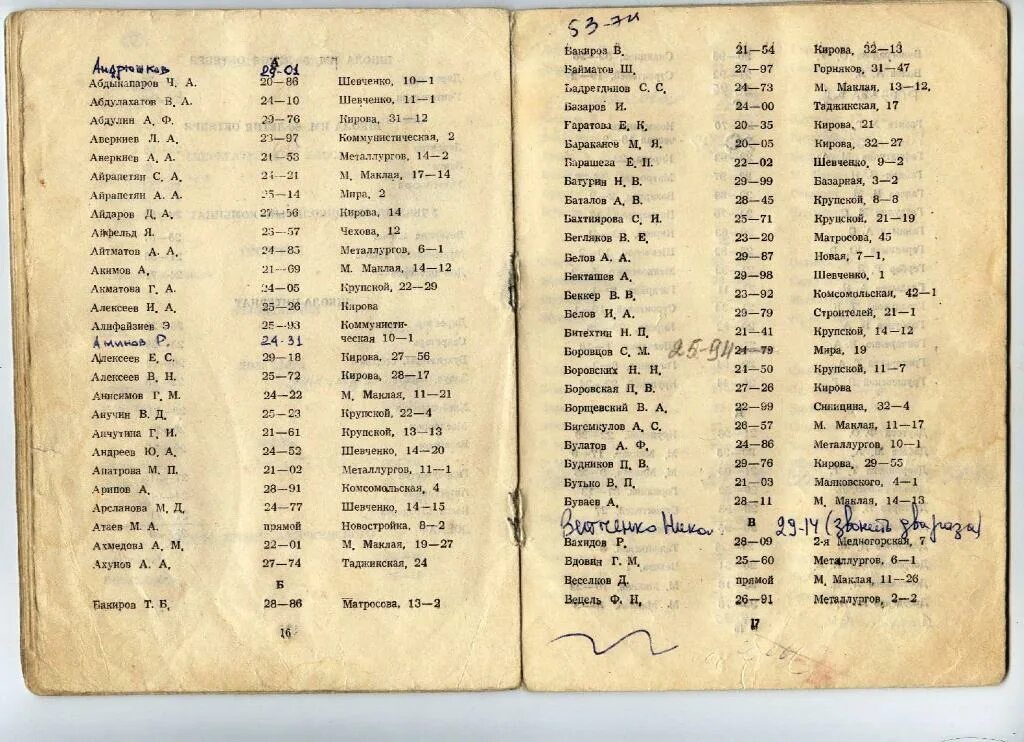 А
Андрюшков 29-01
Абдыкапаров Ч. А. 20—86 Шевченко, 10—1
Абдулахатов В. А. 24—10 Шевченко, 11—1
Абдулин А. Ф. 29—76 Кирова, 31—12
Аверкиев Л. А. 23—97 Коммунистическая, 2
Аверкиев А. А. 21—53 Металлургов, 14—2
Айрапетян С. А. 24—21 М. Маклая, 17—14
Айрапетян А. А. 25—14 Мира, 2
Айдаров Д. А. 27—56 Кирова, 14
Айфельд Я. 25—57 Чехова, 12
Айтматов А. А. 24—85 Металлургов, 6—1
Акимов А. 21—69 М. Маклая, 14—12
Акматова Г. А. 24—05 Крупской, 22—29
Алексеев И. А. 25—26 Кирова
Алифайзиев Э 25—93 Коммунисти-
Аминов Р. 24-31 ческая 10—1
Алексеев Е. С. 29—18 Кирова, 27—56
Алексеев В. Н. 25—72 Кирова, 28—17
Анисимов Г. М. 24—22 М. Маклая, 11—21
Анучин В. Д. 25—23 Крупской, 22—4
Анчутина Г. И. 21—61 Крупской, 13—13
Андреев Ю. А. 24—52 Шевченко, 14—20
Апатрова М. П. 21—02 Металлургов, 11—1
Арипов А. 28—91 Комсомольская, 4
Арсланова М. Д. 24—77 Шевченко, 14—15
Атаев М. А. прямой Новостройка, 8—2
Ахмедова А. М. 22—01 М. Маклая, 19—27
Ахунов А. А. 27—74 Таджикская, 24
Б
Бакиров Т. Б. 28—86 Матросова, 13—2
16
53-74
Бакиров В. 21—54 Кирова, 32—13
Байматов Ш. 27—97 Горняков, 31—47
Бадретдинов С. С. 24—73 М. Маклая, 13—12.
Базаров И. 24—00 Таджикская, 17
Баратова Е. К. 20—35 Кирова, 21
Бараканов М. Я. 20—05 Кирова, 32—27
Барашева Е. П. 22—02 Шевченко, 9—2
Батурин Н. В. 29—99 Базарная, 3—2
Баталов А. В. 28—45 Крупской, 8—8
Бахтиярова С. И. 25—71 Крупской, 21—19
Бегляков В. Е. 23—20 Матросова, 45
Белов А. А. 29—87 Новая, 7—1,
Бекташев А. 29—98 Шевченко, 1
Беккер В. В. 23—92 Комсомольская, 42—1
Белов И. А. 29—79 Строителей, 21—1
Битехтин Н. П. 21—41 Крупской, 14—12
Боровцов С. М. 25-94 24—79 Мира, 19
Боровских Н. Н. 21—50 Крупской, 11—7
Боровская П. В. 27—26 Кирова
Борщевский В. А. 22—99 Синицина, 32—4
Бигемкулов А. С. 26—57 М. Маклая, 11—17
Булатов А. Ф. 24—86 Металлургов, 10—1
Будников П. В. 29—76 Кирова, 29—55
Бутько В. П. 21—03 Маяковского, 4—1
Буваев А. 28—11 М. Маклая, 14—13
В
Ветченко Никол. 29-14 (звонить два раза)
Вахидов Р. 28—09 2-я Медногорская, 7
Вдовин Г. М. 25—60 Металлургов, 6—1
Веселков Д. прямой М. Маклая, 11—26
Вецель Ф. Н. 26—91 Металлургов, 2—2
17